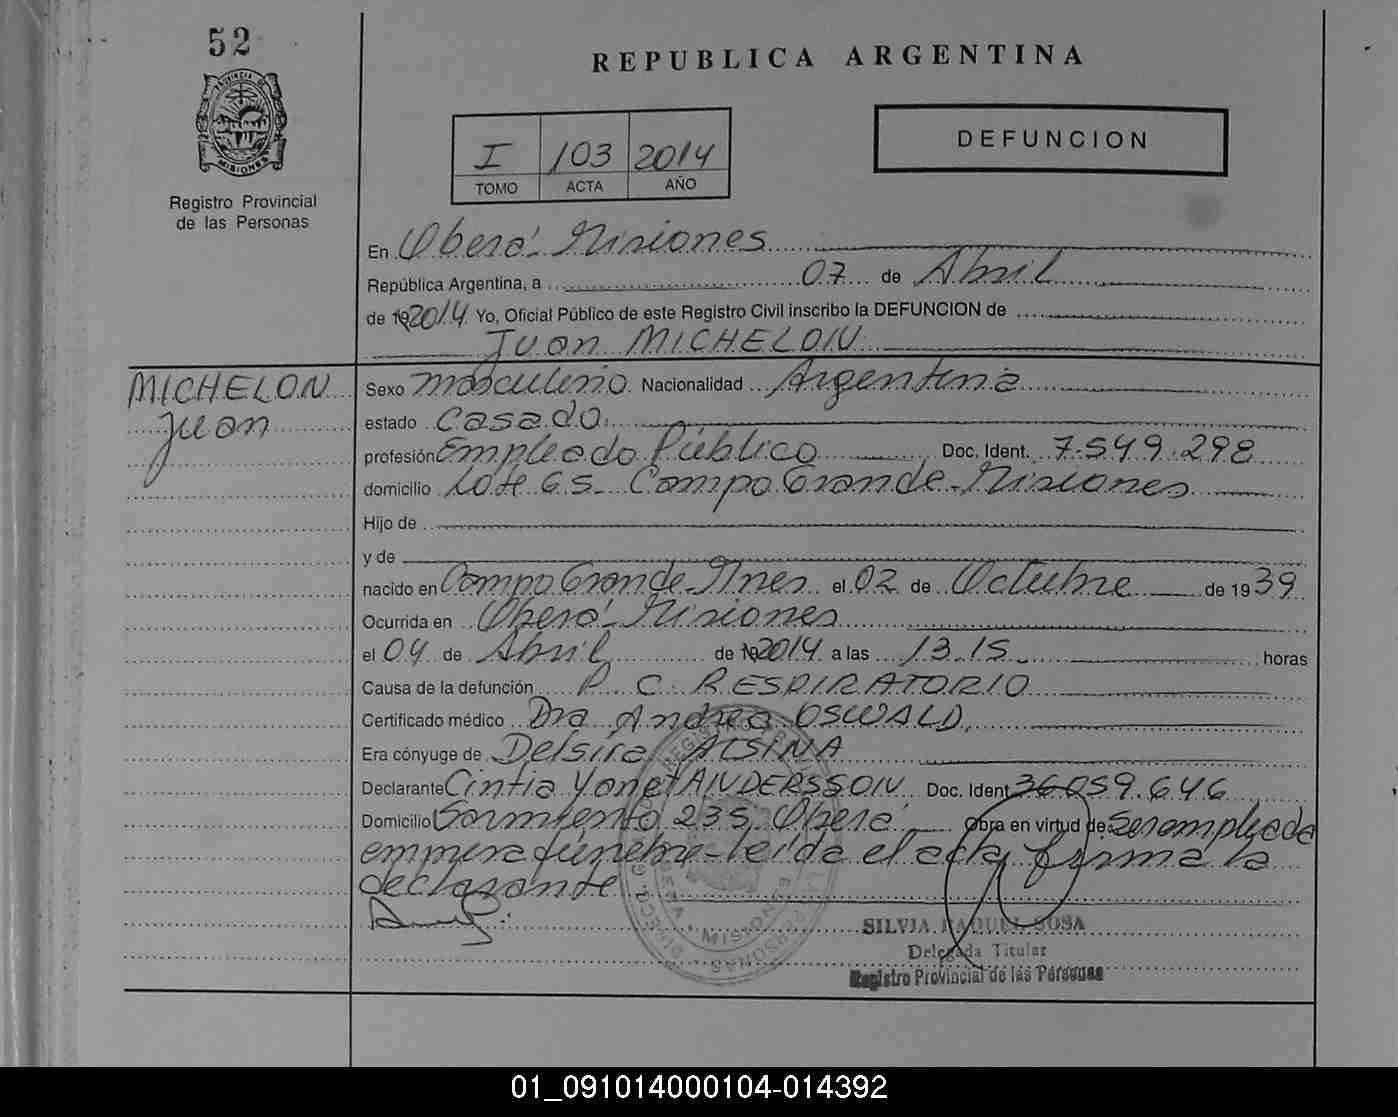 52
REPUBLICA ARGENTINA
PROVINCIA DE
MISIONES
Registro Provincial
de las Personas
I 103 2014
TOMO ACTA AÑO
DEFUNCION
En Oberá Misiones
República Argentina, a 07 de Abril
de 19 2014 Yo, Oficial Público de este Registro Civil inscribo la DEFUNCION de
Juan MICHELON
MICHELON
Juan
Sexo masculino Nacionalidad Argentina
estado Casado
profesión Empleado Público Doc. Ident. 7.549.298
domicilio Lote 65 - Campo Grande - Misiones
Hijo de
y de
nacido en Campo Grande - Mnes el 02 de Octubre de 1939
Ocurrida en Oberá - Misiones
el 04 de Abril de 19 2014 a las 13.15 horas
Causa de la defunción P. C. RESPIRATORIO
Certificado médico Dra Andrea OSWALD
Era cónyuge de Delsira ALSINA
Declarante Cintia Yanet ANDERSSON Doc. Ident 36.059.646
Domicilio Sarmiento 235, Oberá Obra en virtud de: Ser empleada
empresa fúnebre - leída el acta firma la
declarante
SILVIA RAQUEL SOSA
Delegada Titular
Registro Provincial de las Personas
01_091014000104-014392